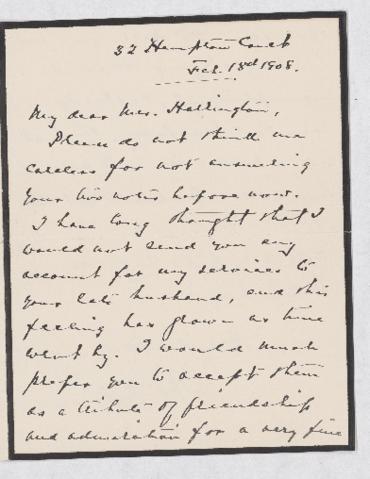 32 Hampton Court
Feb. 18th 1908.
My dear Mrs. Hallington,
Please do not think me
careless for not answering
your two notes before now.
I have long thought that I
would not send you any
account for my services to
your late husband, and this
feeling has grown as time
went by. I would much
prefer you to accept them
as a tribute of friendship
and admiration for a very fine